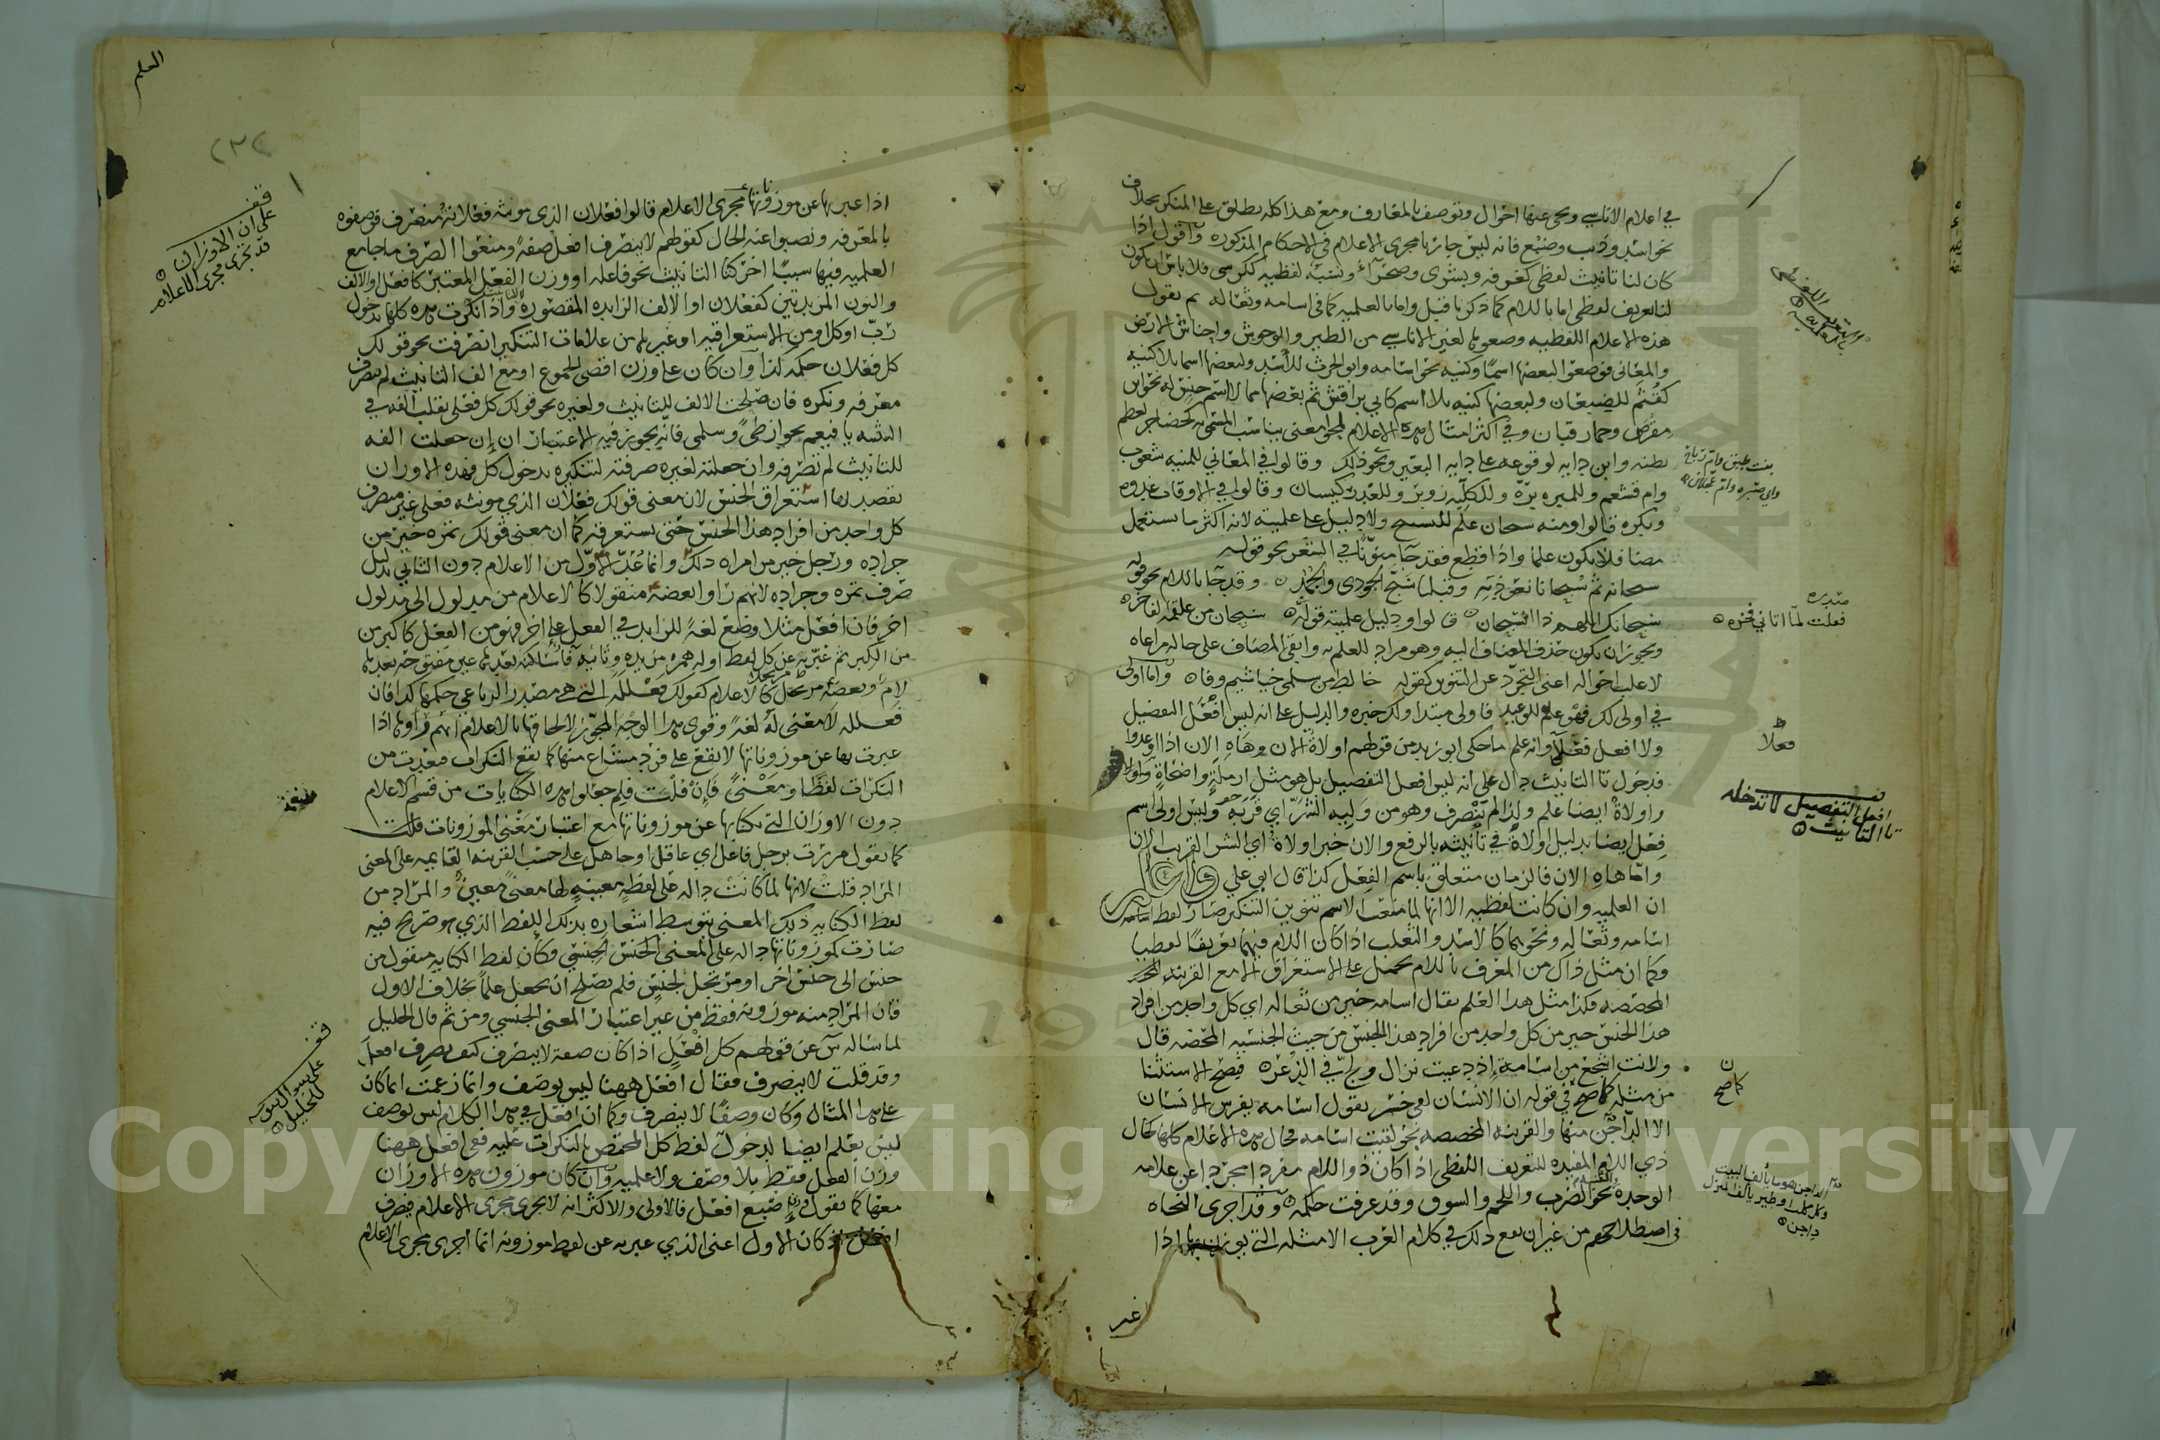 في اعلام الاناسي ويجي عنها احوال وتوصف بالمعارف ومع هذا كله يطلق على المنكر بخلاف
نحو اسد وذيب وضبع فانه ليس جاريا مجرى الاعلام في الاحكام المذكوره واقول اذا
كان لنا تانيث لفظي كغرفه وبشرى وصحراء ونسبة لفظيه ككرسي فلا باس ان يكون
لنا تعريف لفظي اما باللام كما ذكرنا قبل واما بالعلميه كما في اسامه وثعاله ثم نقول
هذه الاعلام اللفظيه وضعوها لغير الاناسي من الطير والوحوش واحناش الارض
والمعاني فوضعوا لبعضها اسما وكنيه نحو اسامه وابو الحرث للاسد ولبعضها اسما بلا كنيه
كقثم للضبعان ولبعضها كنيه بلا اسم كابي براقش ثم بعضها مما لا اسم جنس له نحو ابن
مقرض وحمار قبان وفي اكثر امثال هذه الاعلام لمح معنى يناسب المسمى به كحضاجر لعظم
بطنه وابن دايه لوقوعه على دايه البعير ونحو ذلك وقالوا في المعاني للمنيه شعوب
وام قشعم وللمبره بره وللكليه زوبر وللغدر كيسان وقالوا في الاوقات غدوه
وبكره قالوا ومنه سبحان علم للتسبيح ولا دليل على علميته لانه اكثر ما يستعمل
مضافا فلا يكون علما واذا قطع فقد جا منونا في الشعر نحو قوله
سبحانه ثم سبحانا نعوذ به وقبلنا سبح الجودي والجمد وقد جا باللام نحو قوله
سبحانك اللهم ذا السبحان قالوا ودليل علميته قوله سبحان من علقمه الفاخره
ويجوز ان يكون حذف المضاف اليه وهو مراد للعلم به وابقى المضاف على حاله مراعاه
لاغلب احواله اعني التجرد عن التنوين كقوله خالط من سلمى خياشيم وفا واما اولى
في اولى لك فهو علم للوعيد فاولى مبتدا ولك خبره والدليل على انه ليس افعل التفضيل
ولا افعل فعلا وانه علم ما حكى ابو زيد من قولهم اولاة الان وهاه الان اذا اوعدوا
فدخول تا التانيث دال على انه ليس افعل التفضيل بل هو مثل ارملة واضحاة واولى
واولاة ايضا علم ولذا لم ينصرف وهو من وليه الشر اي قربه وليس اولى اسم
فعل ايضا بدليل اولاة في تانيثه بالرفع والان خبر اولاة اي الشر القريب الان
واما هاه الان فالزمان متعلق باسم الفعل كذا قال ابو علي واعلم
ان العلميه وان كانت لفظيه الا انها لما منعت الاسم تنوين التنكير صار لفظ اسامه
اسامه وثعاله ونحوهما كالاسد والثعلب اذا كان اللام فيهما تعريفا لفظيا
وكما ان مثل ذاك من المعرف باللام يحمل على الاستغراق الا مع القرينه
المخصصه فكذا مثل هذا العلم يقال اسامه خير من ثعاله اي كل واحد من افراد
هذا الجنس خير من كل واحد من افراد هذا الجنس من حيث الجنسيه المحضه قال
ولانت اشجع من اسامة اذ دعيت نزال ولج في الذعر فصح الاستثنا
من مثله كما صح في قوله ان الانسان لفي خسر يقول اسامه يفرس الانسان
الا الداجن منها والقرينه المخصصه نحو لقيت اسامه فحال هذه الاعلام كلها كحال
ذي اللام المفيده للتعريف اللفظي اذا كان ذو اللام مفردا مجردا عن علامه
الوحده نحو الضرب واللحم والسوق وقد عرفت حكمه وقد اجرى النحاه
في اصطلاحهم من غير ان يقع ذلك في كلام العرب الامثله التي يوزن بها اذا
بالتعريف اللفظي
بنت طبق وام رباح
وابي صبره وام عجلان
صدره
فعلت لما اتاني فخره
فعلا
قف
افعل التفضيل لا تدخله
تا التانيث
ن
كما صح
الداجن هو ما يالف البيت
وكل كلب او طير يالف المنزل
داجن
عبر
العلم
٢٣٢
اذا عبر بها عن موزوناتها مجرى الاعلام قالوا فعلان الذي مونثه فعلانة منصرف فوصفوه
بالمعرفه ونصبوا عنه الحال كقولهم لا ينصرف افعل صفة ومنعوا الصرف ما جامع
العلميه فيها سببا اخر كتا التانيث نحو فاعله او وزن الفعل المعتبر كافعل او الالف
والنون المزيدتين كفعلان او الالف الزايده المقصورة واذا نكرت هذه كلها بدخول
رب او كل او من الاستغراقيه او غيرها من علامات التنكير انصرفت نحو قولك
كل فعلان حكمه كذا وان كان على وزن اقصى الجموع او مع الف التانيث لم ينصرف
معرفه ونكره فان صلحت الالف للتانيث ولغيره نحو قولك كل فعلى يقلب الفه في
التثنيه يا فيعم نحو ارطى وسلمى فانه يجوز فيه الاعتباران ان جعلت الفه
للتانيث لم تصرفه وان جعلته لغيره صرفته لتنكيره بدخول كل فهذه الاوزان
يقصد بها استغراق الجنس لان معنى قولك فعلان الذي مونثه فعلى غير منصرف
كل واحد من افراد هذا الجنس حتى يستغرقه كما ان معنى قولك تمره خير من
جراده ورجل خير من امراه ذلك وانما عد الاول من الاعلام دون الثاني بدليل
صرف تمره وجراده لانهم راوا بعضه منقولا كالاعلام من مدلول الى مدلول
اخر فان افعل مثلا وضع لغة للزايد في الفعل على اخر فهو من الفعل كاكبر من
من الكبر ثم عبر به عن كل لفظ اوله همزه مزيده وثانيه فا ساكنه بعدها عين مفتوحه بعدها
لام وبعضه مرتجل كالاعلام كقولك فعللة التي هي مصدر الرباعي حكمها كذا فان
فعلله لا معنى له لغة وقوى هذا الوجه المجوز لالحاقها بالاعلام انهم راوها اذا
عبرت بها عن موزوناتها لا يقع على فرد مشاع منها كما يقع النكرات فبعدت من
النكرات لفظا ومعنى فإن قلت فلم جعلوا هذه الكنايات من قسم الاعلام
دون الاوزان التي يكنى بها عن موزوناتها مع اعتبار معنى الموزونات
كما تقول مررت برجل فاعل اي عاقل او جاهل على حسب القرينه القايمه على المعنى
المراد قلت لانها لما كانت داله على لفظ معينه لها معنى معين والمراد من
لفظ الكنايه ذلك المعنى بتوسط اشعاره بذلك اللفظ الذي هو صريح فيه
صارت كموزوناتها داله على المعنى الجنس الجنسي وكان لفظ الكنايه منقول من
جنس الى جنس اخر او مرتجل لجنس فلم يصلح ان يجعل علما بخلاف الاول
فان المراد منه موزونه فقط من غير اعتبار المعنى الجنسي ومن ثم قال الخليل
لما ساله س عن قولهم كل افعل اذا كان صفة لا ينصرف كيف تصرف افعل
وقد قلت لا ينصرف فقال افعل ههنا ليس بوصف وانما زعمت ان ما كان
على هذا المثال وكان وصفا لا ينصرف وكما ان افعل في هذا الكلام ليس بوصف
ليس بعلم ايضا لدخول لفظ كل المختص بالنكرات عليه ففي افعل ههنا
وزن الفعل فقط بلا وصف ولا علميه وان كان موزون هذه الاوزان
معها كما تقول وزن اصبع افعل فالاولى والاكثر انه لا يجري مجرى الاعلام فيصرف
افعل اذ كان الاول اعني الذي عبر به عن لفظ موزونه انما اجري مجرى الاعلام
قف
على ان الاوزان
قد تجري مجرى الاعلام
قف
على سوال سيبويه
للخليل
Copy King University